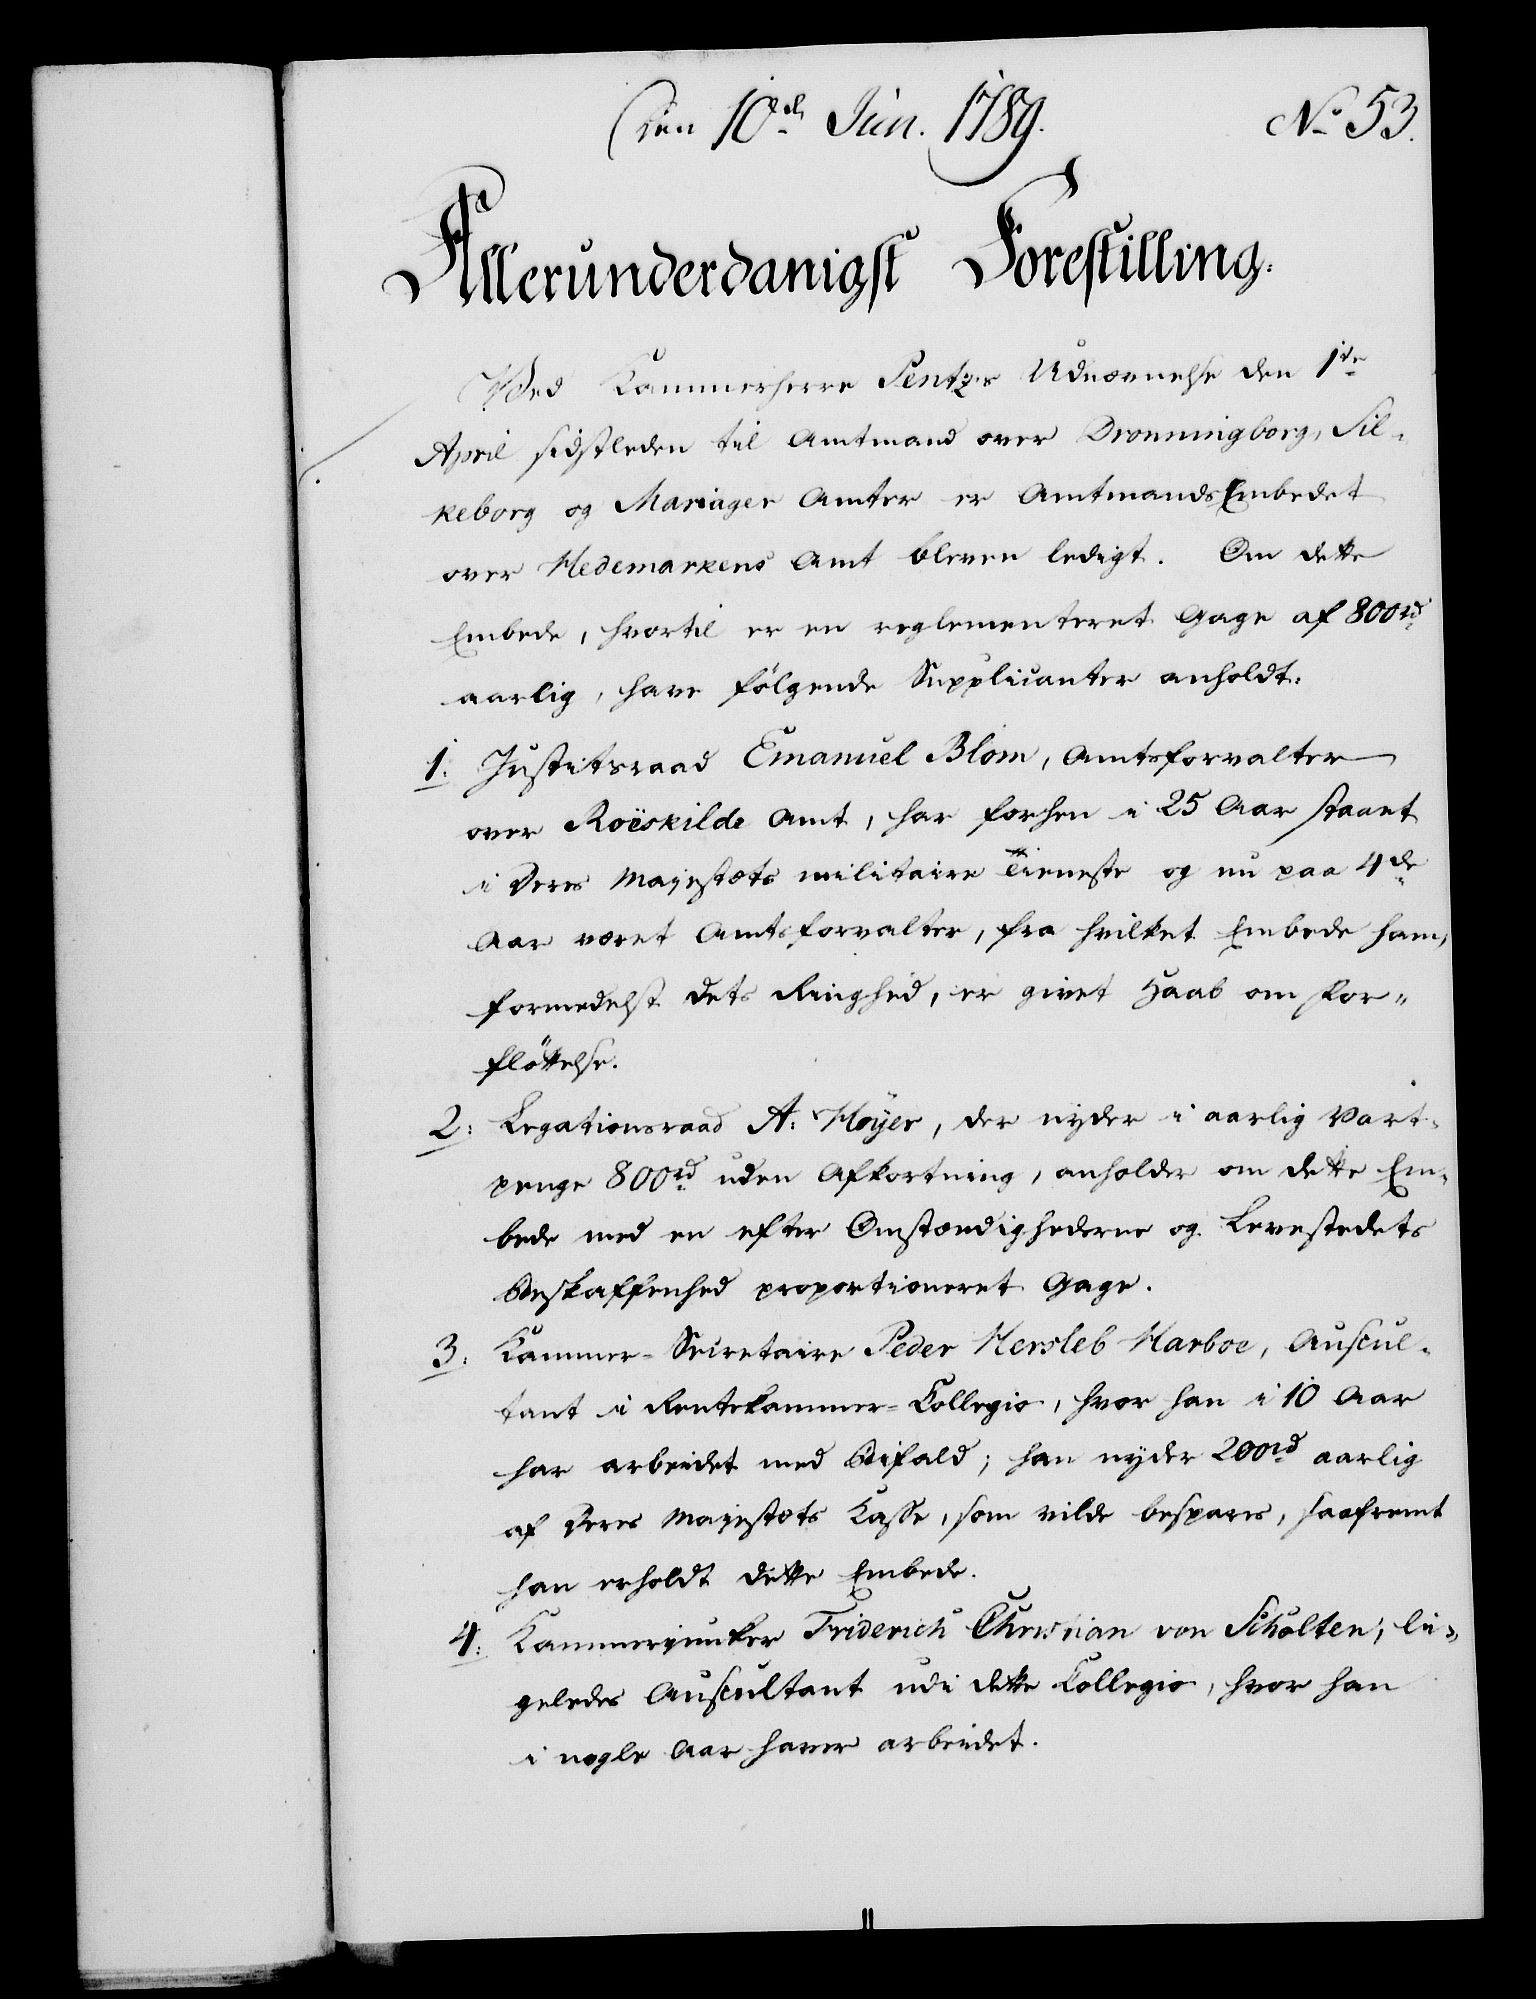 Den 10de Jun. 1789. No 53.
Allerunderdanigst Forestilling.
Ved Kammerherre Pentzes Udnævnelse den 1te
April sidstleden til Amtmand over Dronningborg, Sil-
keborg og Mariager Amter er Amtmands Embedet
over Hedemarkens Amt bleven ledigt. Om dette
Embede, hvortil er en reglementeret Gage af 800rd
aarlig, have følgende Supplicanter anholdt:
1. Justitsraad Emanuel Blom, Amtsforvalter
over Roëskilde Amt, har forhen i 25 Aar staaet
i Deres Majestæts militaire Tieneste og nu paa 4de
Aar været Amtsforvalter, fra hvilket Embede ham,
formedelst dets Ringhed, er givet Haab om For-
flöttelse.
2. Legationsraad A. Høyer, der nyder i aarlig Vart-
penge 800rd uden Afkortning, anholder om dette Em-
bede med en efter Omstændighederne og Levestedets
Beskaffenhed proportioneret Gage.
3. Kammer-Secretaire Peder Hersleb Harboe, Auscul-
tant i Rentekammer-Collegio, hvor han i 10 Aar
har arbeidet med Bifald; han nyder 200rd aarlig
af Deres Majestæts Kasse, som vilde bespares, saafremt
han erholdt dette Embede.
4. Kammerjunker Friderich Christian von Scholten, li-
geledes Auscultant udi dette Collegio, hvor han
i nogle Aar haver arbeidet.